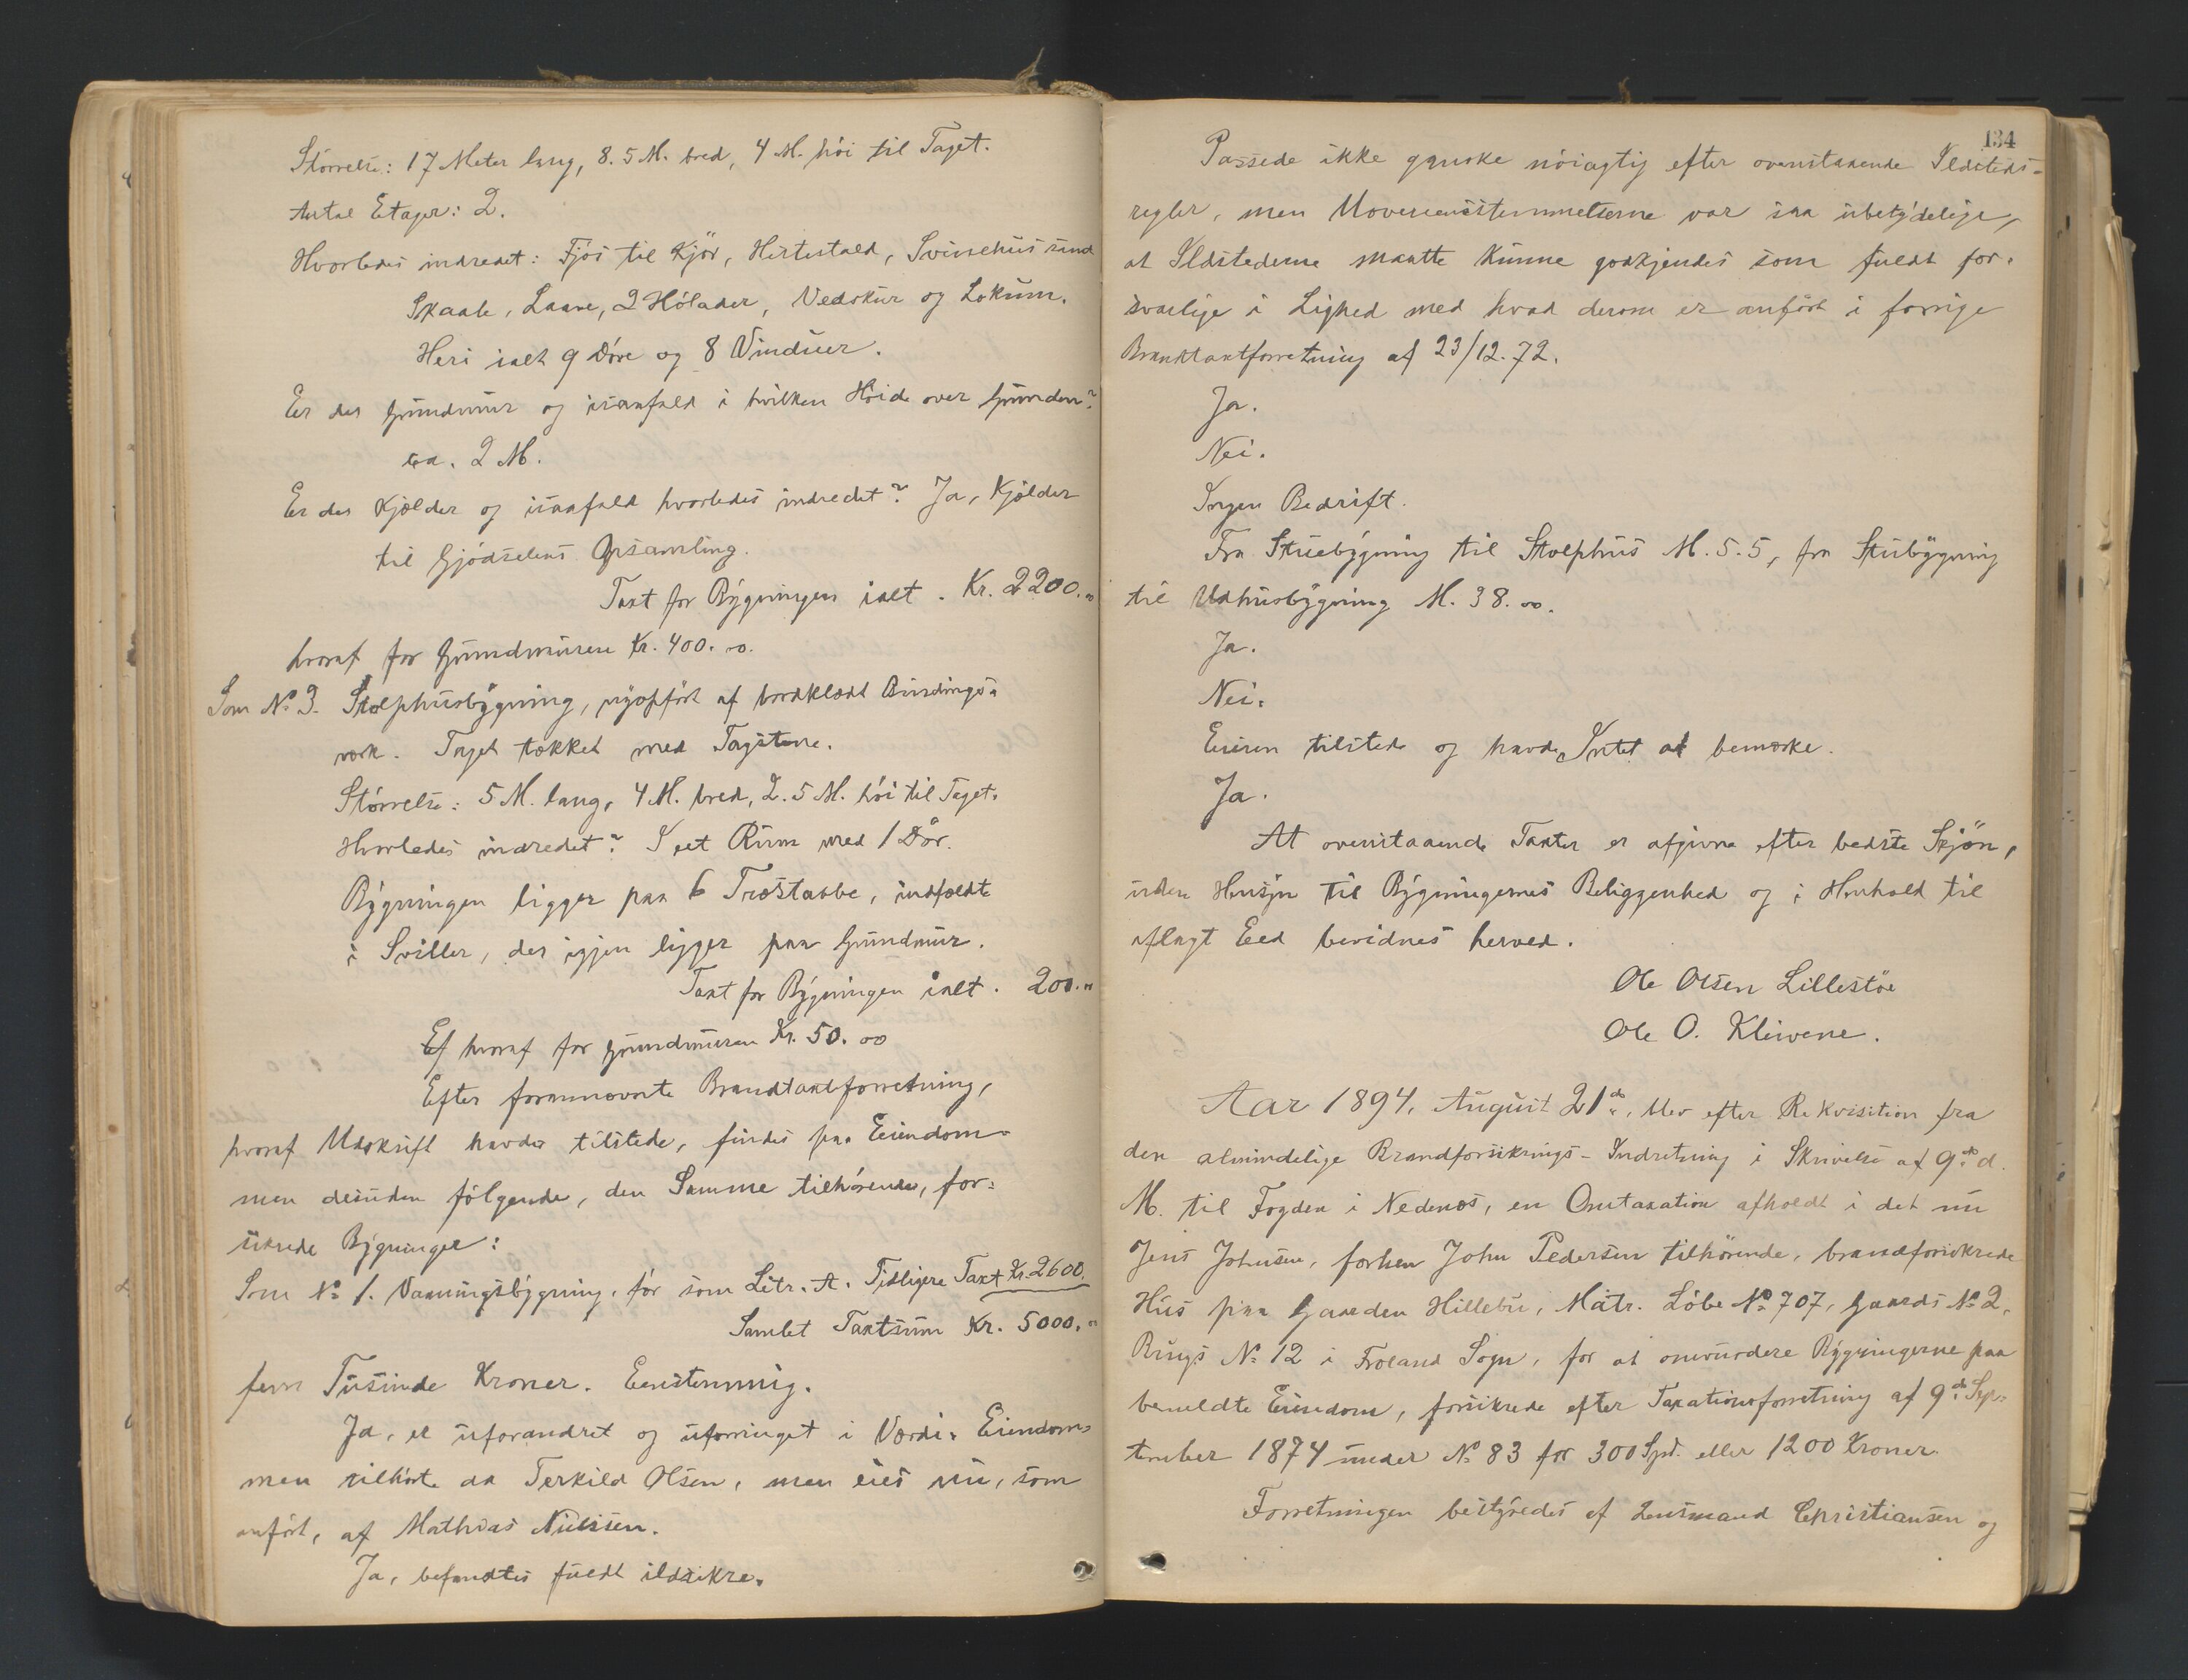 Størrelse: 17 Meter lang, 8.5 M. bred, 4 M. høi til Taget.
Antal Etager: 2.
Hvorledes indredet: Fjøs til Kjør, Hestestald, Svinehus samt
Skaale, Laave, 2 Hølader, Vedskur og Lokum.
Heri ialt 9 Døre og 8 Vinduer.
Er der Grundmur og isaafald i hvilken Høide over Grunden?
ca. 2 M.
Er der Kjælder og isaafald hvorledes indredet? Ja, Kjælder
til Gjødselens Opsamling.
Taxt for Bygningen ialt. Kr. 2200.„
hvoraf for Grundmuren Kr. 400.00.
Som No 3. Stolphusbygning, nyopført af bordklædt Bindings-
værk. Taget tækket med Tagstene.
Størrelse: 5 M. lang, 4 M. bred, 2.5 M. høi til Taget.
Hvorledes indredet? I et Rum med 1 Dør.
Bygningen ligger paa 6 Træstabbe, indfældte
i Sviller, der igjen ligger paa Grundmur.
Taxt for Bygningen ialt. 200.„
hvoraf for Grundmuren Kr. 50.00
Efter forannævnte Brandtaxtforretning,
hvoraf Udskrift havdes tilstede, findes paa Eiendom-
men desuden følgende, den Samme tilhørende, for-
sikrede Bygninger:
Som No 1. Vaaningsbygning, før som Litr. A. Tidligere Taxt Kr. 2600.
Samlet Taxtsum Kr. 5000.„
fem Tusinde Kroner. Eenstemmig.
Ja, er uforandret og uforringet i Værdi. Eiendom-
men tilhørte da Terkild Olsen, men eies nu, som
anført, af Mathias Nielsen.
Ja, befandtes fuldt ildsikre.
134
Passede ikke ganske nøiagtig efter ovenstaaende Ildsteds-
regler, men Uoverensstemmelserne var saa ubetydelige,
at Ildstederne maatte kunne godkjendes som fuldt for-
svarlige i Lighed med hvad derom er anført i forrige
Brandtaxtforretning af 23/12.72.
Ja.
Nei.
Ingen Bedrift.
Fra Stuebygning til Stolphus M. 5.5, fra Stubygning
til Udhusbygning M. 38.00.
Ja.
Nei.
Eieren tilstede og havde Intet at bemærke.
Ja.
At ovenstaaende Taxter er afgivne efter bedste Skjøn,
uden Hensyn til Bygningernes Beliggenhed og i Henhold til
aflagt Eed bevidnes herved.
Ole Olsen Lillestöe
Ole O. Klivene.
Aar 1894, August 21de, blev efter Rekvisition fra
den almindelige Brandforsikrings-Indretning i Skrivelse af 9de d.
M. til Fogden i Nedenæs, en Omtaxation afholdt i det nu
Jens Johnsen, forhen John Pedersen tilhørende, brandforsikrede
Hus paa Gaarden Hillebu, Matr. Løbe No 707, Gaards No 2,
Brugs No 12 i Froland Sogn, for at omvurdere Bygningerne paa
bemeldte Eiendom, forsikrede efter Taxationsforretning af 9de Sep-
tember 1874 under No 83 for 300 Spd. eller 1200 Kroner.
Forretningen bestyredes af Lensmand Christiansen og